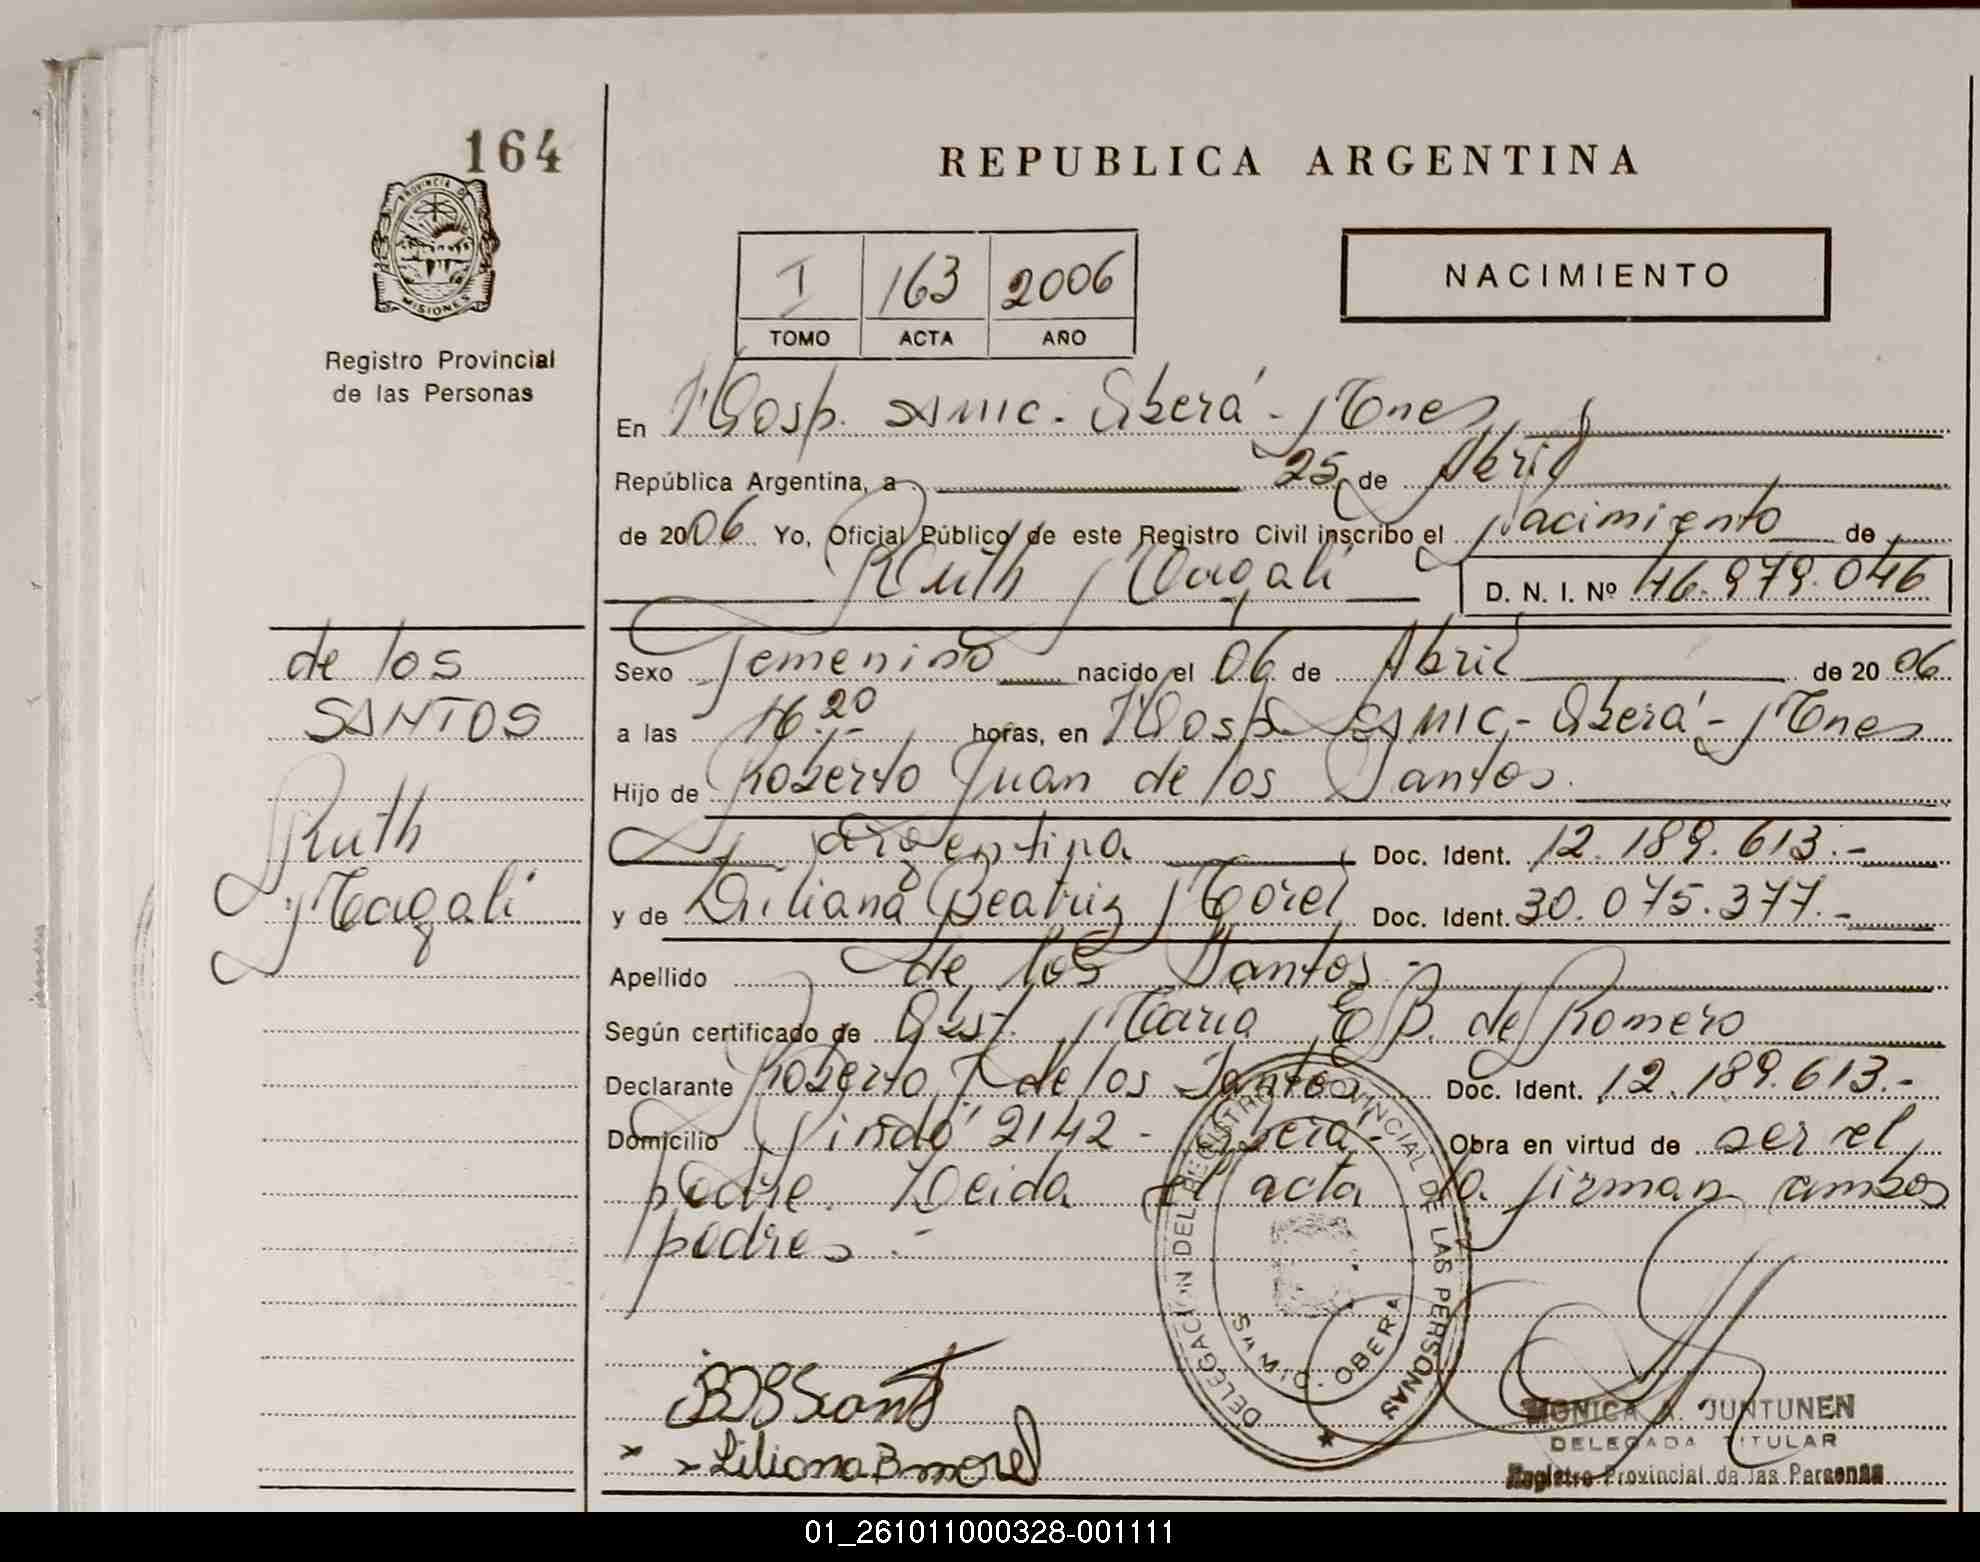 164
PROVINCIA DE
MISIONES
Registro Provincial
de las Personas
REPUBLICA ARGENTINA
I 163 2006
TOMO ACTA AÑO
NACIMIENTO
En Hosp. SAMIC - Oberá - Mnes
República Argentina, a 25 de Abril
de 2006 Yo, Oficial Público de este Registro Civil inscribo el Nacimiento de
Ruth Magali D. N. I. Nº 46.979.046
de los
SANTOS
Ruth
Magali
Sexo Femenino nacido el 06 de Abril de 20 06
a las 16.20 horas, en Hosp. SAMIC - Oberá - Mnes
Hijo de Roberto Juan de los Santos.
argentina Doc. Ident. 12.189.613.-
y de Liliana Beatriz Morel Doc. Ident. 30.075.377.-
Apellido de los Santos.-
Según certificado de Obst. Maria E B. de Romero
Declarante Roberto J de los Santos Doc. Ident. 12.189.613.-
Domicilio Pindó 2142 - Oberá - Obra en virtud de ser el
padre. Leida el acta la firman ambos
padres.-
DELEGACION DEL REGISTRO PROVINCIAL DE LAS PERSONAS
OBERA
Liliana B morel
MONICA A. JUNTUNEN
DELEGADA TITULAR
Registro Provincial de las Personas
01_261011000328-001111